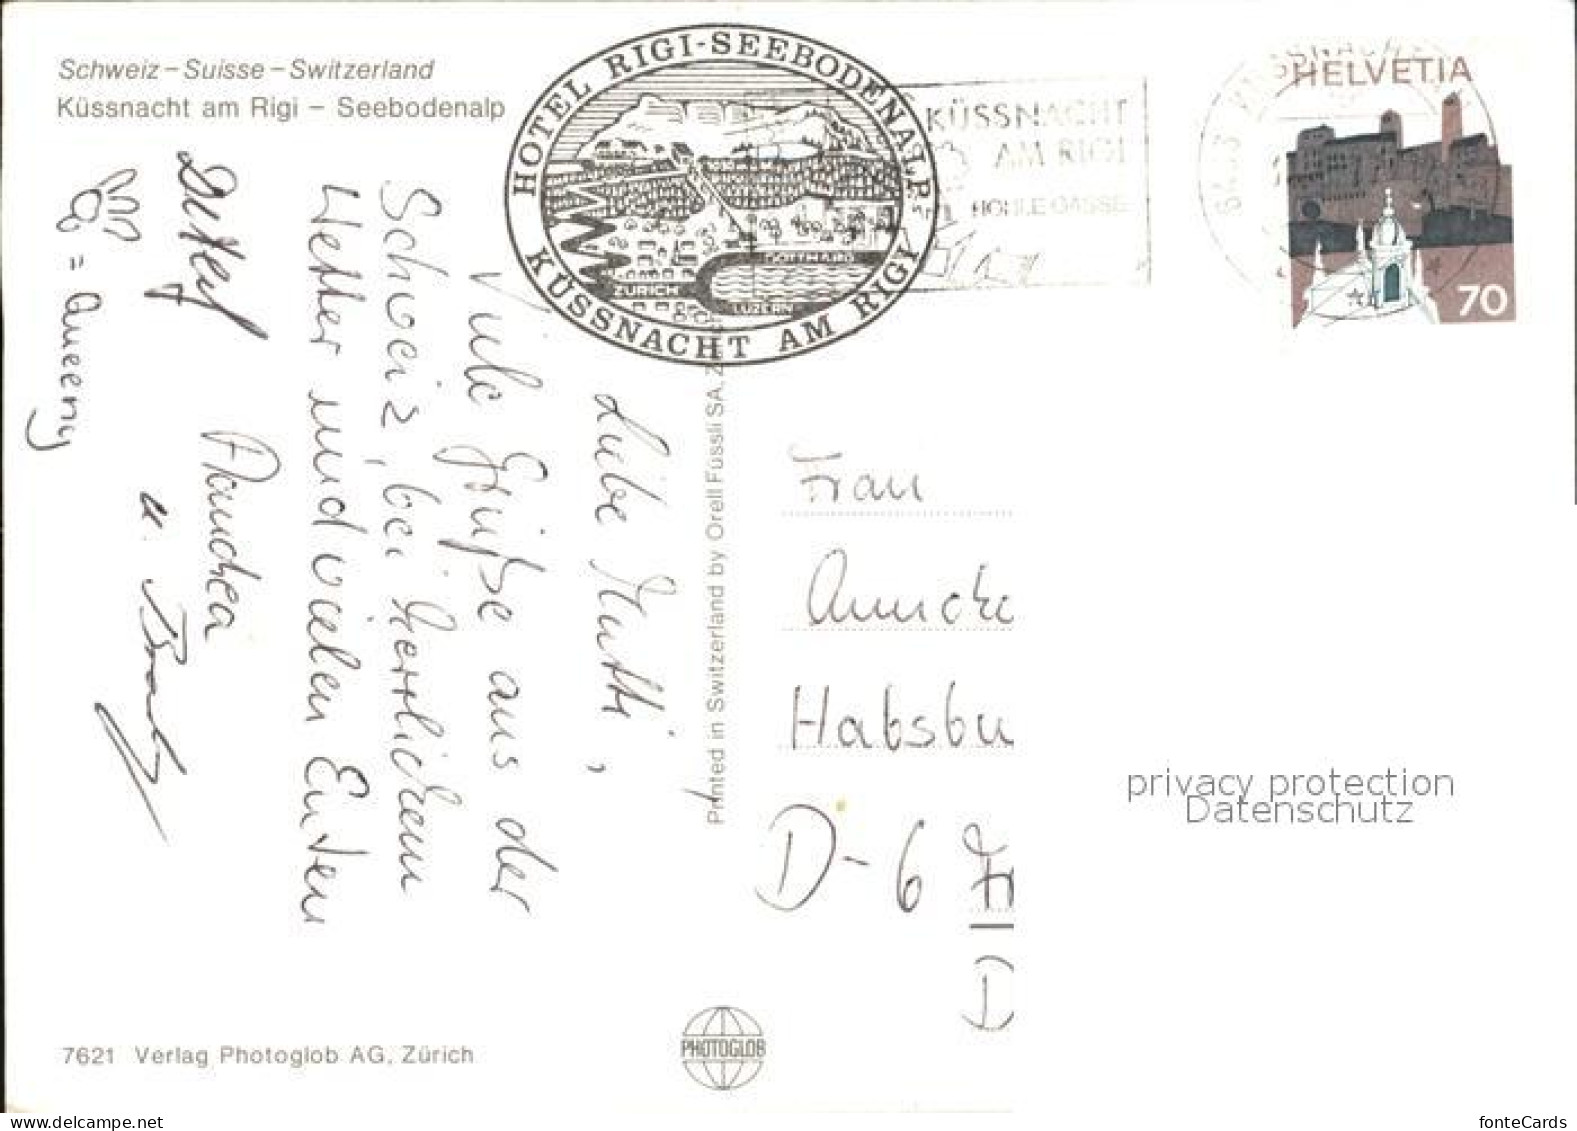 Schweiz – Suisse – Switzerland
Küssnacht am Rigi – Seebodenalp
HOTEL RIGI-SEEBODENALP
KÜSSNACHT AM RIGI
ZÜRICH
GOTTHARD
LUZERN
KÜSSNACHT
AM RIGI
HOHLE GASSE
6403
HELVETIA
70
Liebe Mutti,
Viele Grüße aus der
Schweiz, bei herrlichem
Wetter und vielen
Detlef
u.
= Queeny
Printed in Switzerland by Orell Füssli SA, Z
Frau
Habsbu
D-6 Fr
privacy protection
Datenschutz
7621 Verlag Photoglob AG, Zürich
PHOTOGLOB
www.delcampe.net
fonteCards